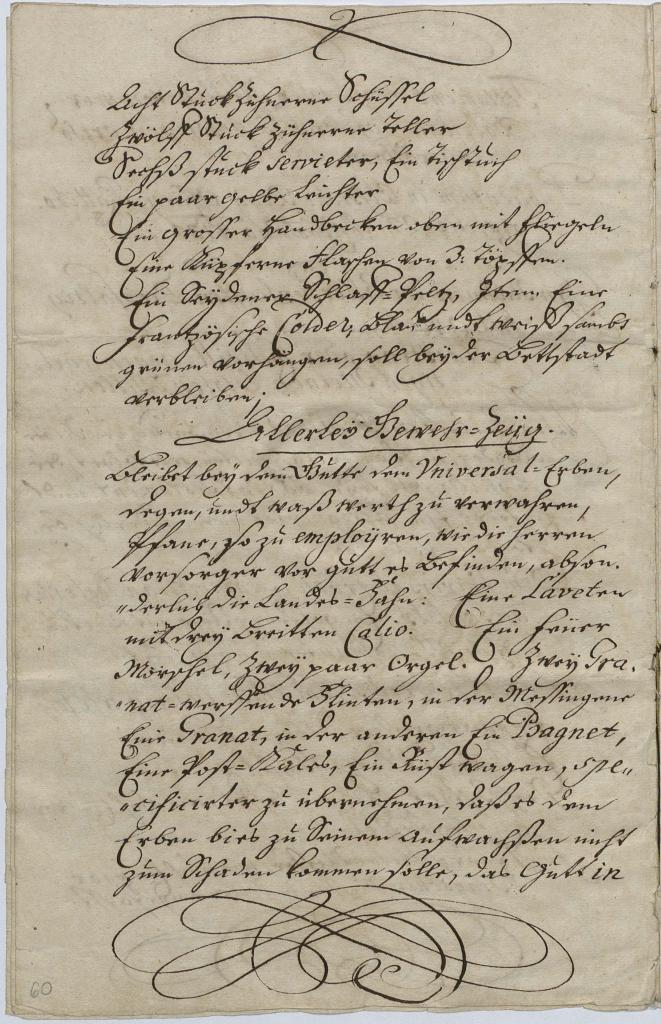 Acht Stück Zühnerne Schüssel
Zwölff Stück Zühnerne Teller
Sechß stück servieter, Ein Tischtuch
Ein paar gelbe leichter
Ein grosser Handbecken oben mit Fliegeln
Eine Kupferne Flaschen von 3: Töpffen.
Ein Seÿdener Schlaff-Peltz, Item Eine
Frantzösische Colder, Blau undt weiß sambt
grünen vorhängen, soll beÿ der Bettstadt
verbleiben;
Allerleÿ Gewehr-Zeüg.
Bleibet beÿ dem Gutte dem Vniversal-Erben,
degen, undt waß werth zu verwahren,
Pfane, so zu emploÿren, wie die herren
vorsorger vor gutt es befinden, abson-
"derlich die Landes-Fahn: Eine Laveten
mit dreÿ breitten Calio. Ein feüer
Mörschel, Zweÿ paar Orgel. Zweÿ Gra-
"nat-werffende Flinten, in der Messingene
Eine Granat, in der anderen Ein Bagnet,
Eine Post-Kales, Ein Rüst wagen, spe"
"cificirter zu übernehmen, daß es dem
Erben bies zu Seinem aufwachßen nicht
zum Schaden kommen solle, das Gutt in
60